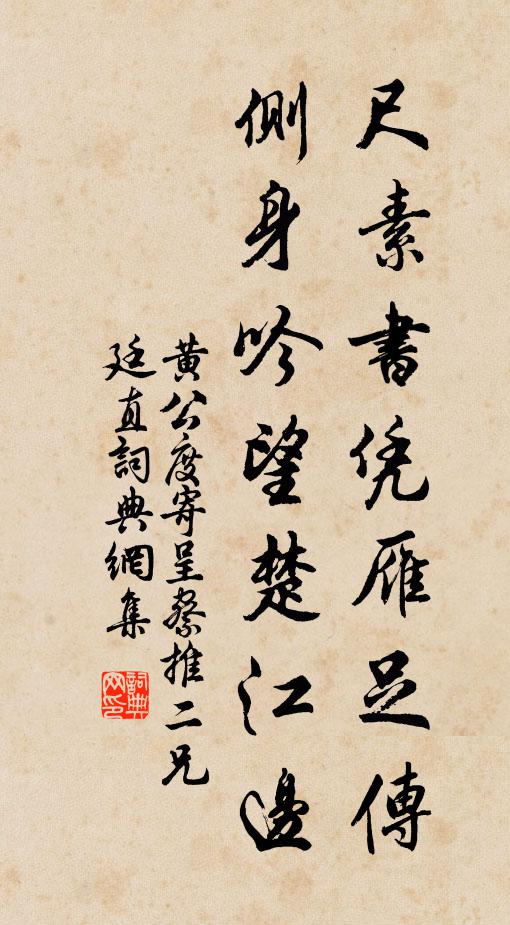 尺素書凭雁足傳
側身吟望楚江邊
黃公度寄呈察推二兄
廷直詞典網集
詞典网印